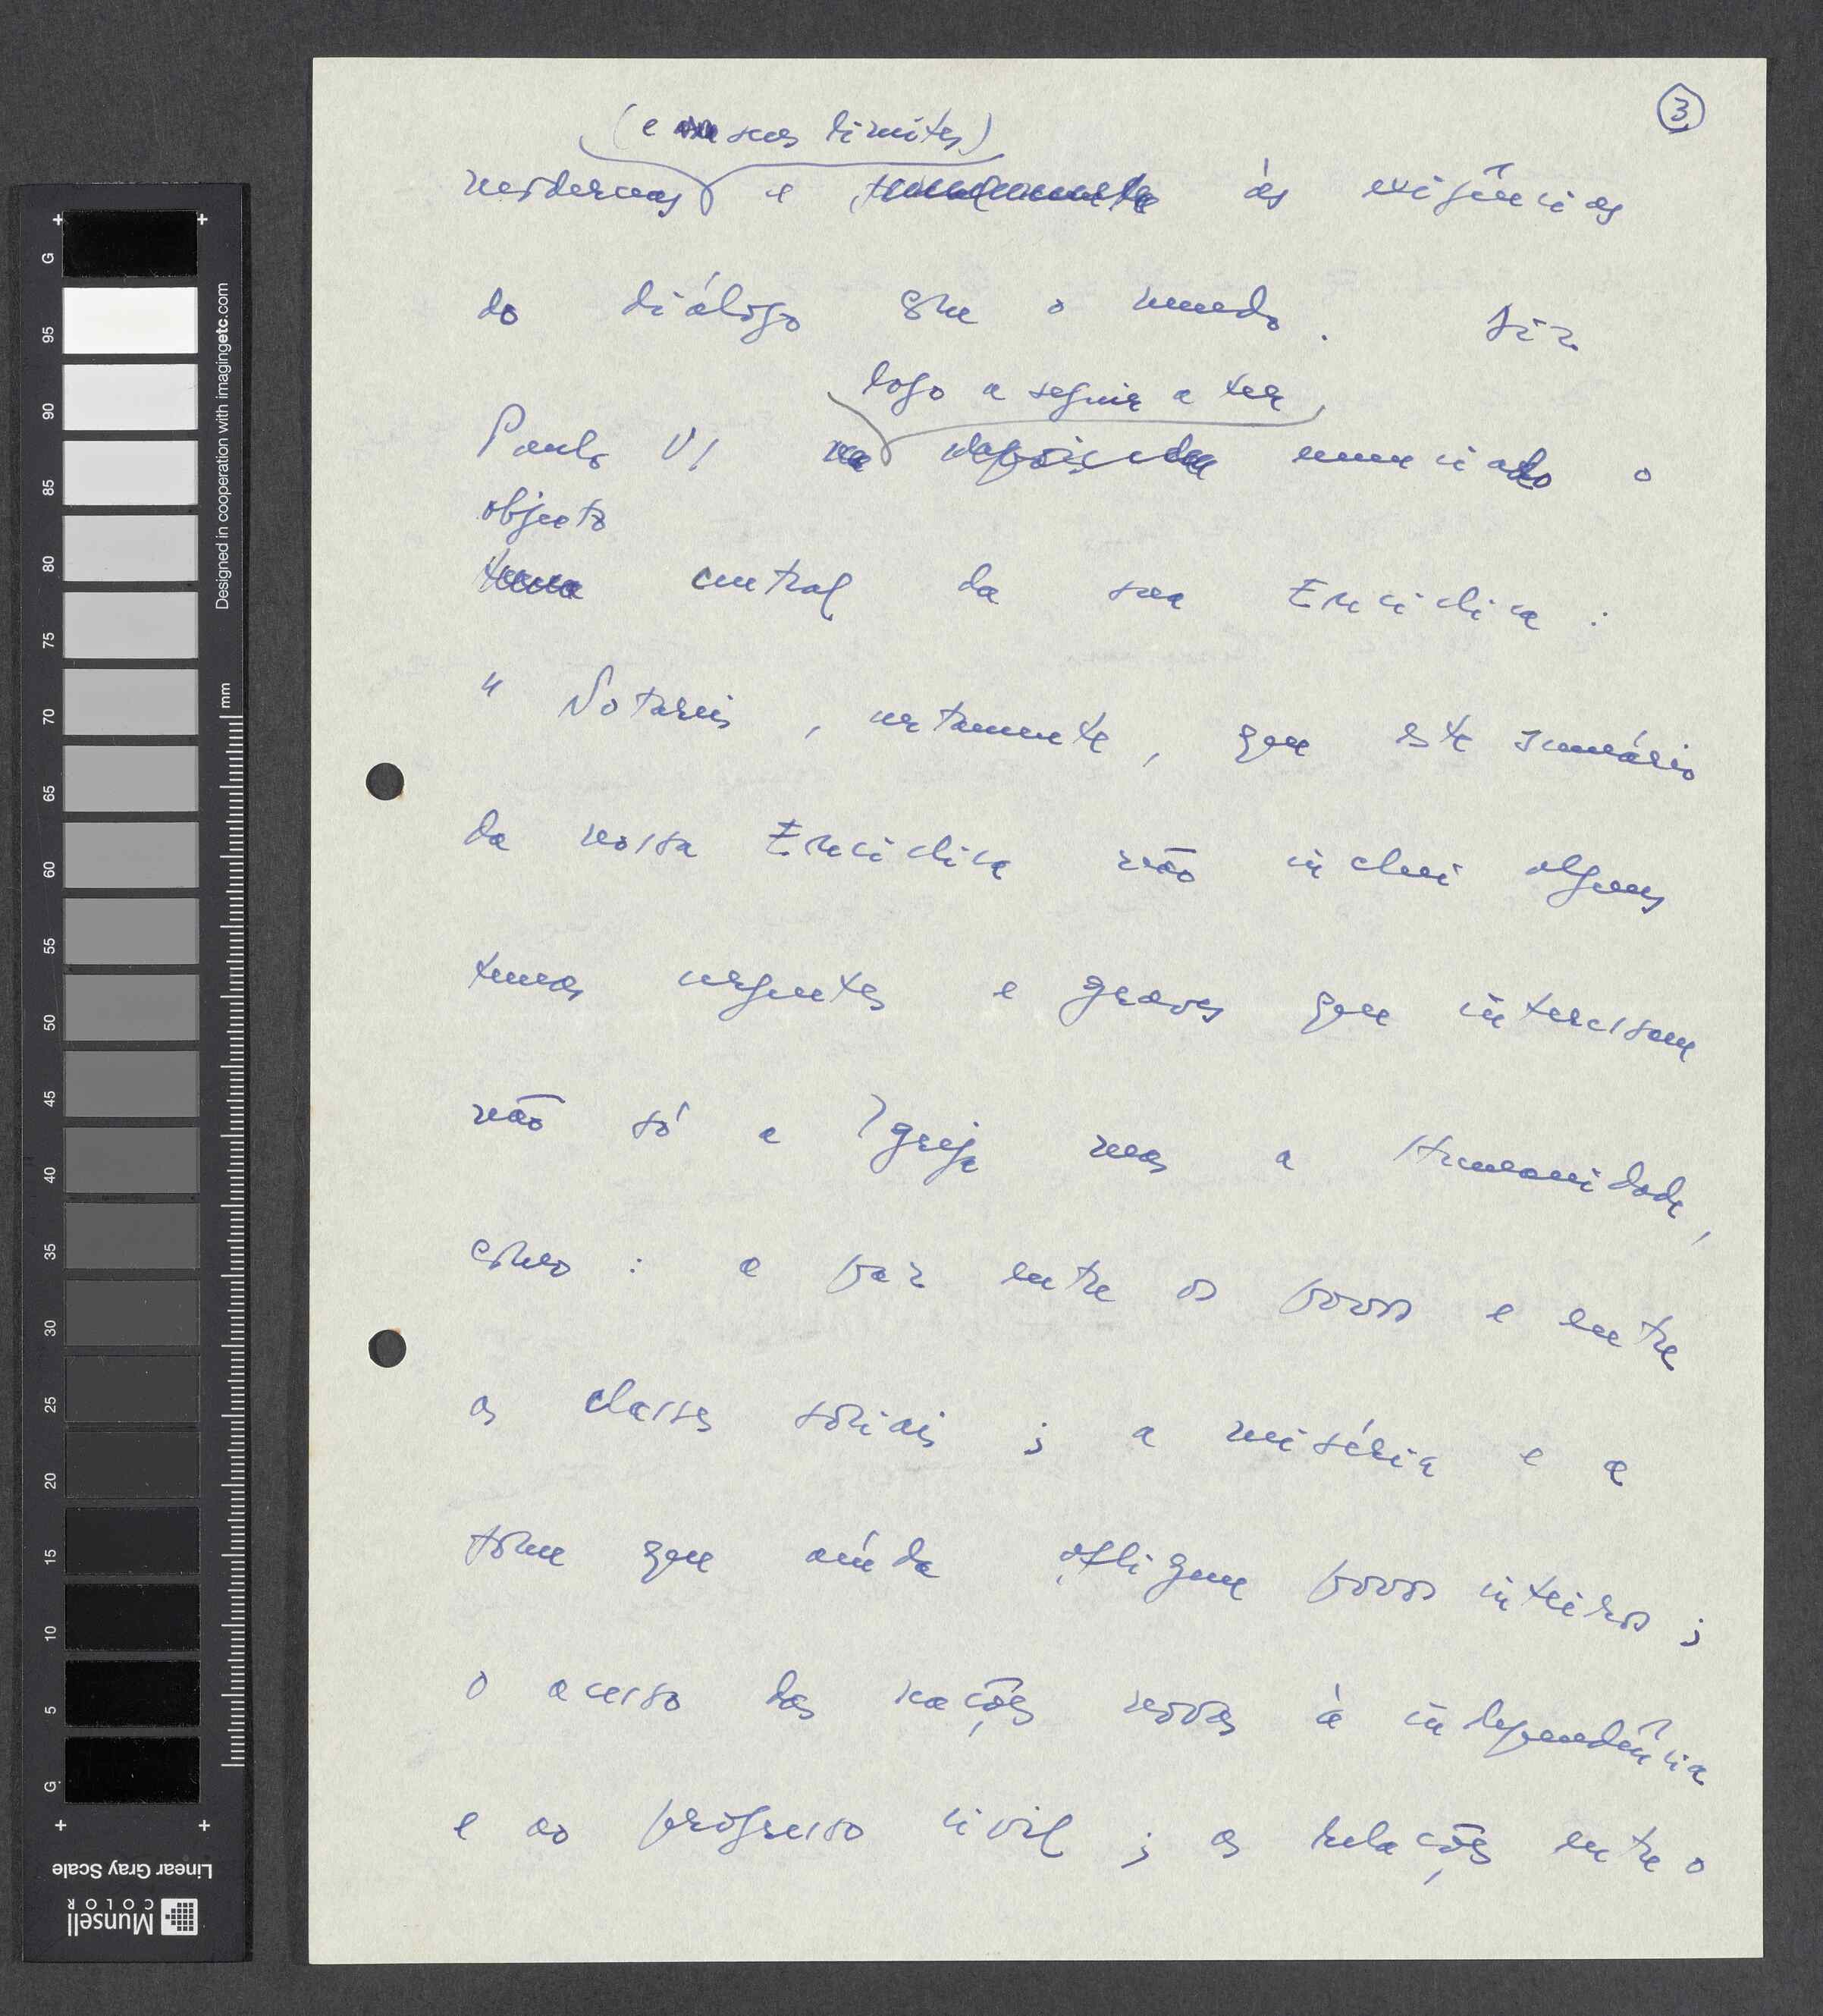 3
(e seus limites)
modernas e às exigências
do diálogo com o mundo. Diz
logo a seguir a ter
Paulo VI enunciado o
objecto
central da sua Encíclica :
" Notareis, certamente, que este sumário
da nossa Encíclica não inclui alguns
temas urgentes e graves que interessam
não só a Igreja mas a Humanidade,
como : a paz entre os povos e entre
as classes sociais ; a miséria e a
fome que ainda afligem povos inteiros ;
o acesso das nações novas à independência
e ao progresso civil ; as relações entre o
Designed in cooperation with imagingetc.com
mm
G
95
90
85
80
75
70
65
60
55
50
45
40
35
30
25
20
15
10
5
G
Linear Gray Scale
Munsell
COLOR